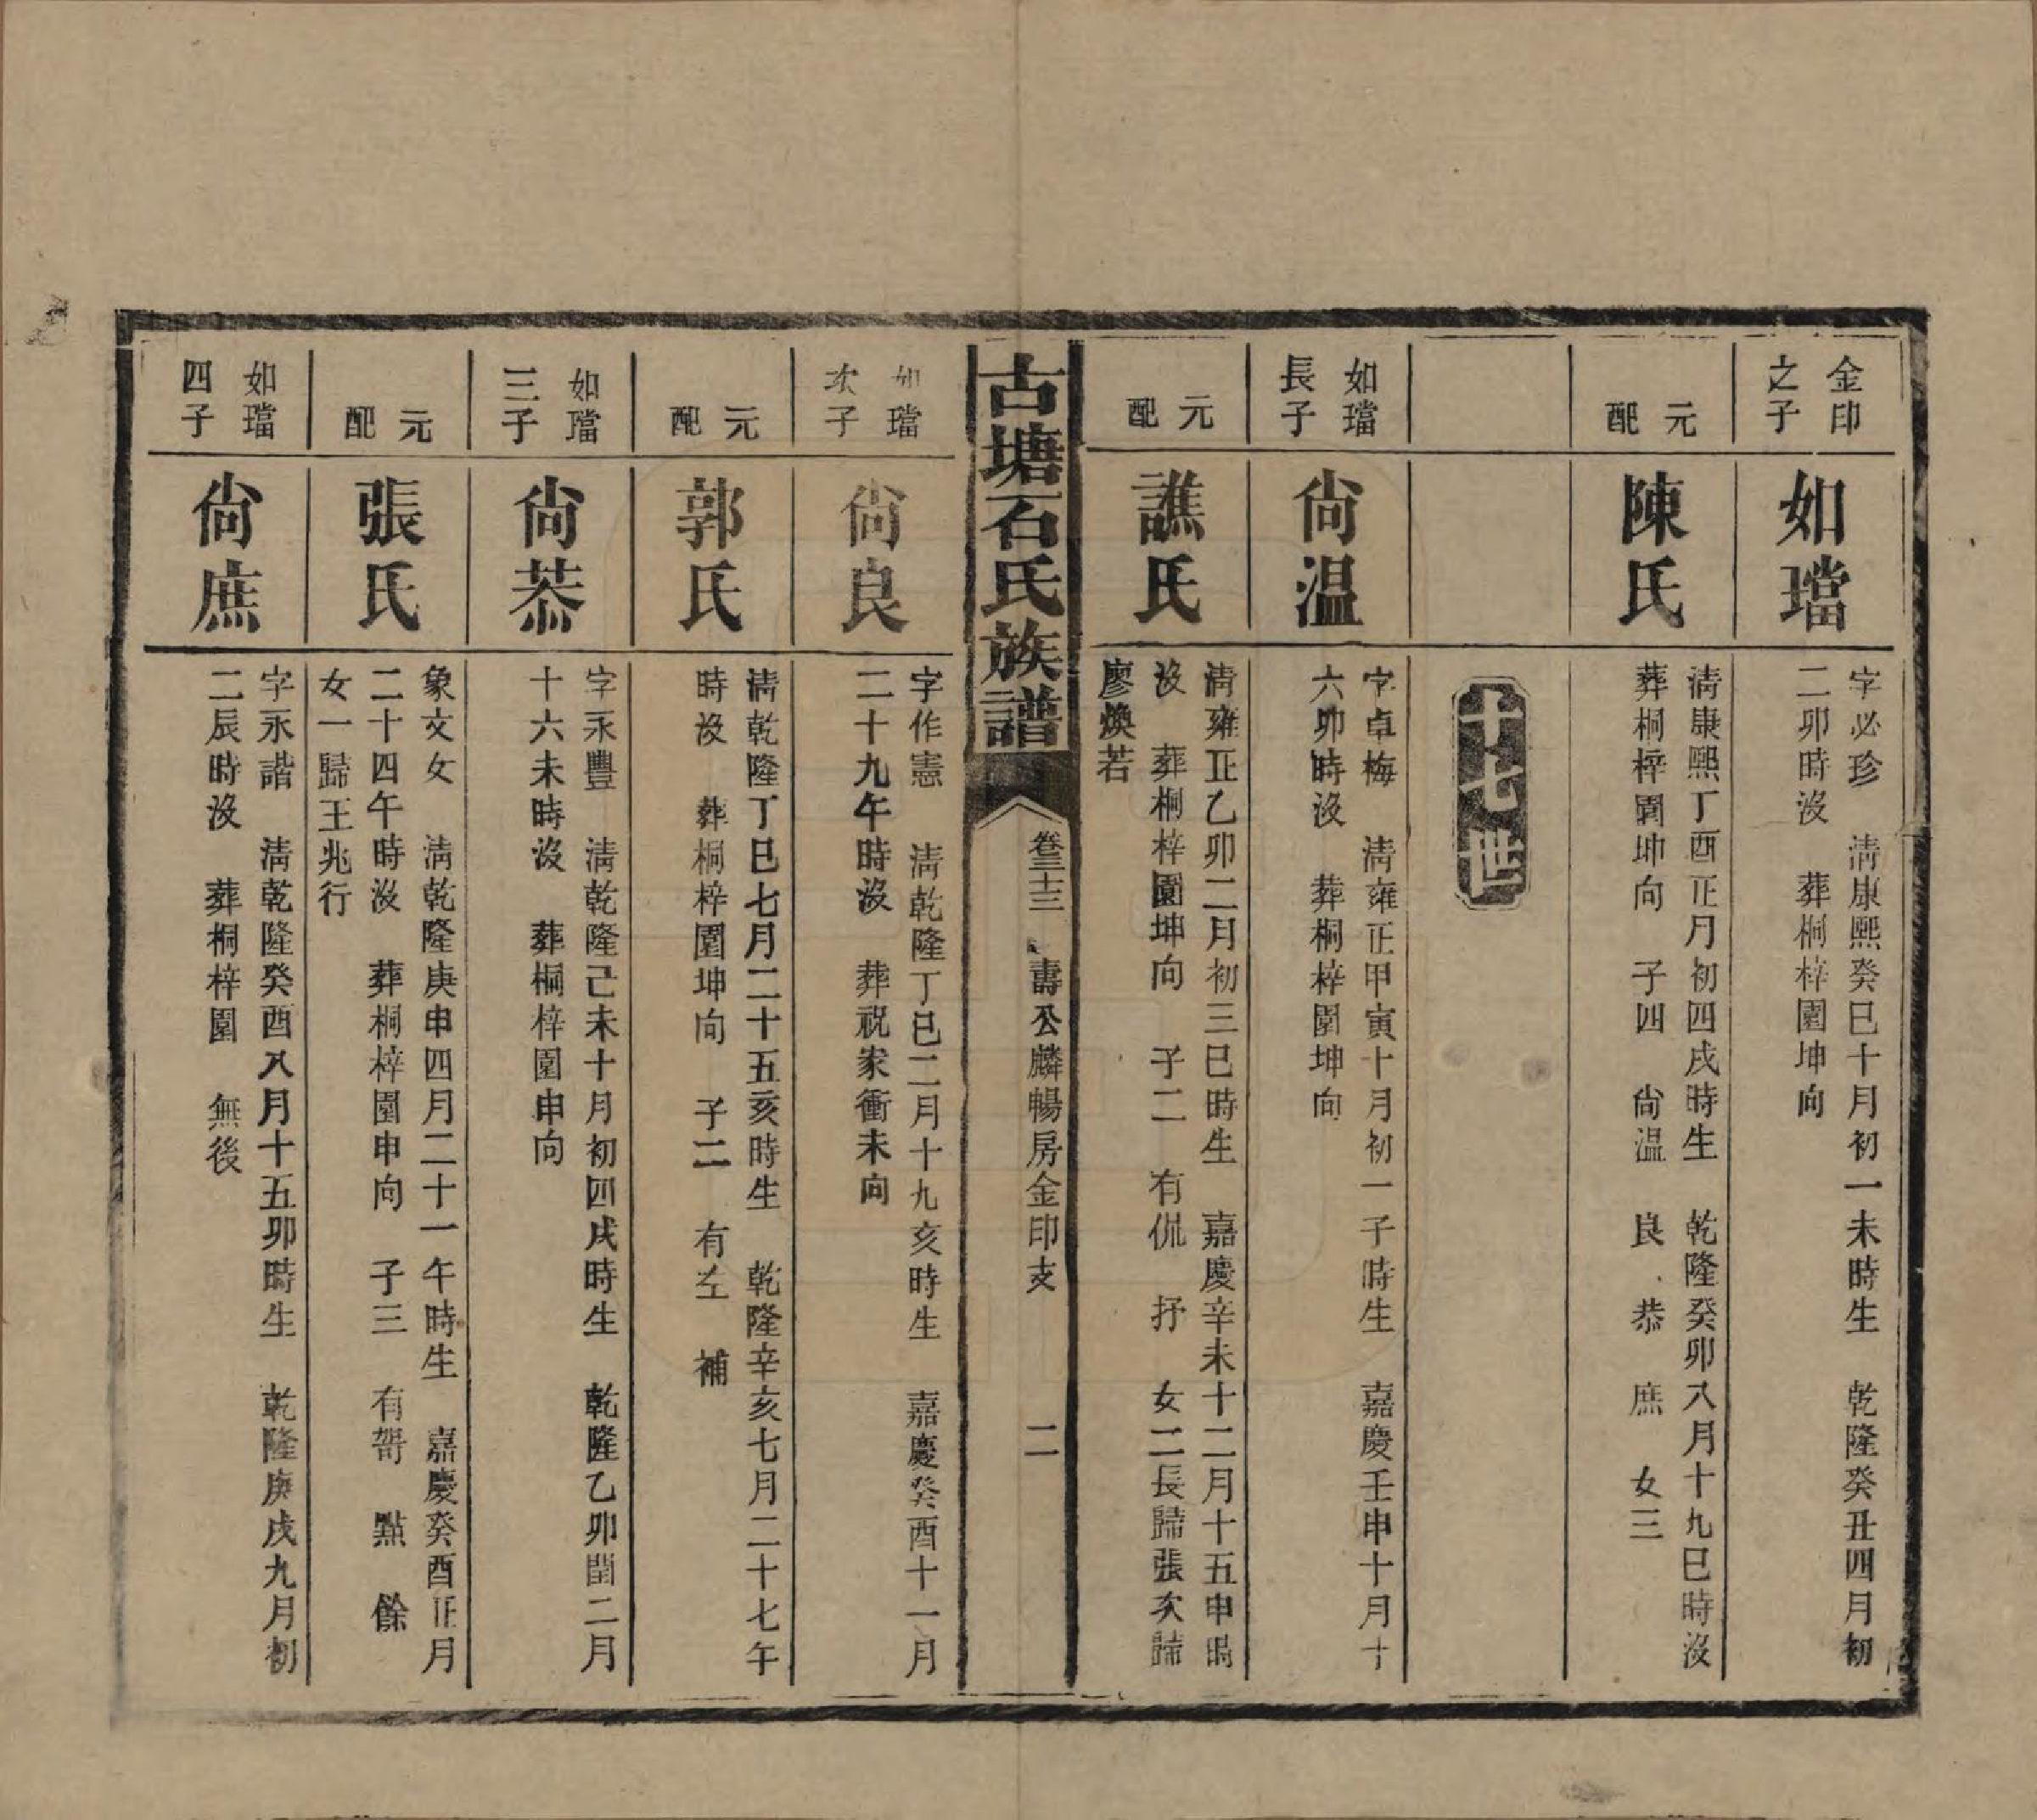 金印
之子
如璫
字必珍　清康熙癸巳十月初一未時生　乾隆癸丑四月初
二卯時沒　葬桐梓園坤向
元
配
陳氏
清康熙丁酉正月初四戌時生　乾隆癸卯八月十九巳時沒
葬桐梓園坤向　子四　尙温　良　恭　庶　女三
十七世
如璫
長子
尙温
字卓梅　清雍正甲寅十月初一子時生　嘉慶壬申十月十
六卯時沒　葬桐梓園坤向
元
配
譙氏
清雍正乙卯二月初三巳時生　嘉慶辛未十二月十五申時
沒　葬桐梓園坤向　子二　有侃　抒　女二長歸張次歸
廖煥若
古塘石氏族譜
卷三十三　壽公麟暢房金印支　二
如璫
次子
尙良
字作憲　清乾隆丁巳二月十九亥時生　嘉慶癸酉十一月
二十九午時沒　葬祝家衝未向
元
配
郭氏
清乾隆丁巳七月二十五亥時生　乾隆辛亥七月二十七午
時沒　葬桐梓園坤向　子二　有左　補
如璫
三子
尙恭
字永豐　清乾隆己未十月初四戌時生　乾隆乙卯閏二月
十六未時沒　葬桐梓園申向
元
配
張氏
象文女　清乾隆庚申四月二十一午時生　嘉慶癸酉正月
二十四午時沒　葬桐梓園申向　子三　有哿　點　餘
女一歸王兆行
如璫
四子
尙庶
字永諧　清乾隆癸酉八月十五卯時生　乾隆庚戌九月初
二辰時沒　葬桐梓園　無後